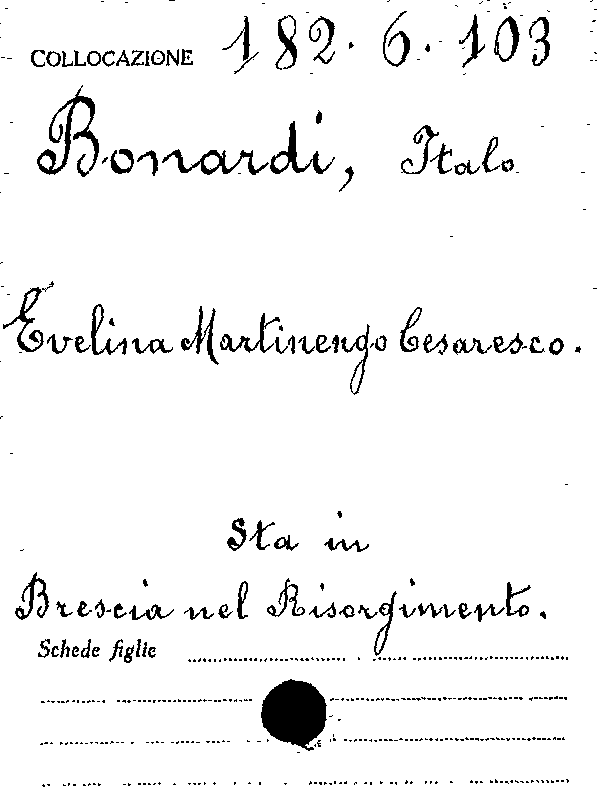 COLLOCAZIONE 182. 6. 103
Bonardi, Italo
Evelina Martinengo Cesaresco.
Sta in
Brescia nel Risorgimento.
Schede figlie